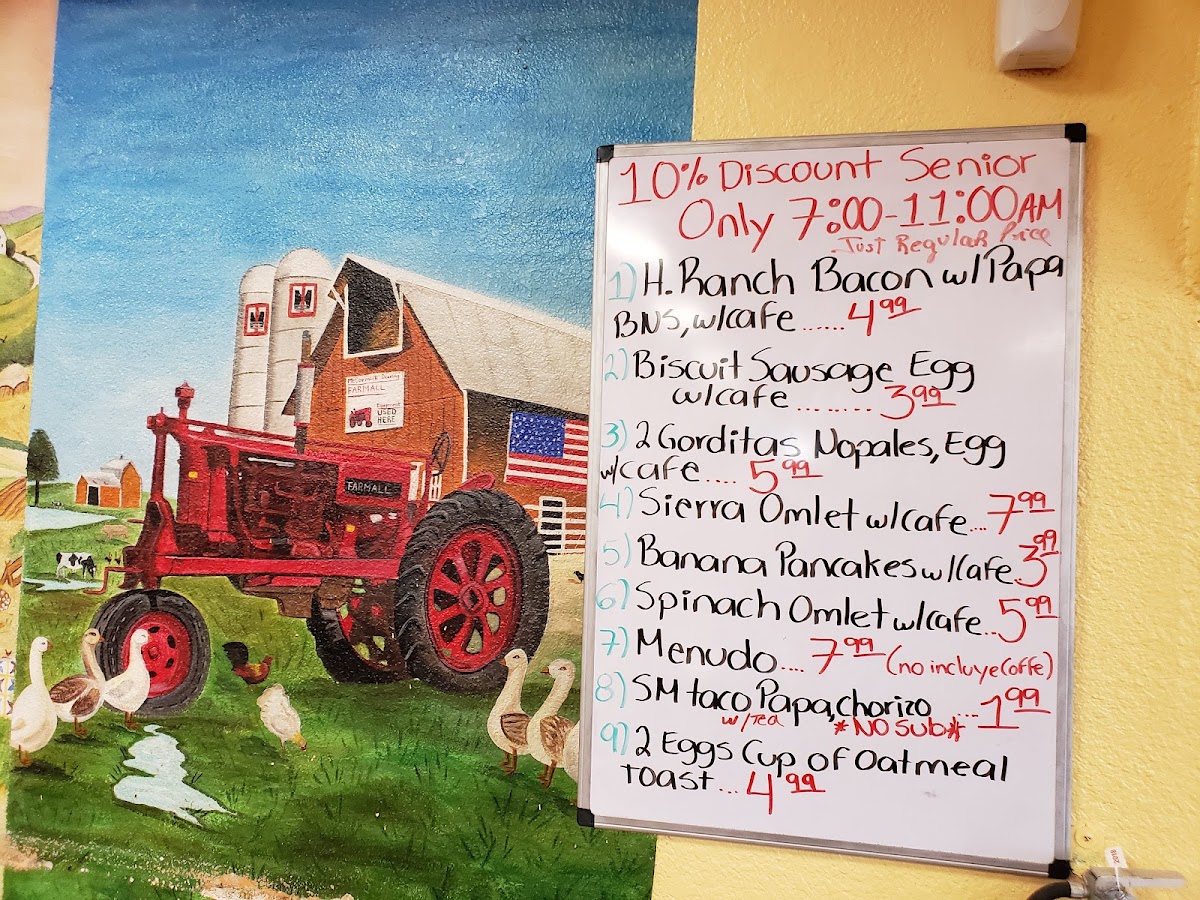 10% Discount Senior
Only 7:00-11:00AM
Just Regular Price
1) H. Ranch Bacon w/Papa
BNS, w/cafe ......4.99
2) Biscuit Sausage Egg
w/cafe ........ 3.99
3) 2 Gorditas Nopales, Egg
w/cafe.... 5.99
4) Sierra Omlet w/cafe... 7.99
5) Banana Pancakes w/cafe 3.99
6) Spinach Omlet w/cafe...5.99
7) Menudo.... 7.99 (no incluye Coffe)
8) SM taco Papa, chorizo ....1.99
w/Tea *NO SUB*
9) 2 Eggs Cup of Oatmeal
Toast... 4.99
McCormick Deering
FARMALL
Equipment
USED
HERE
FARMALL